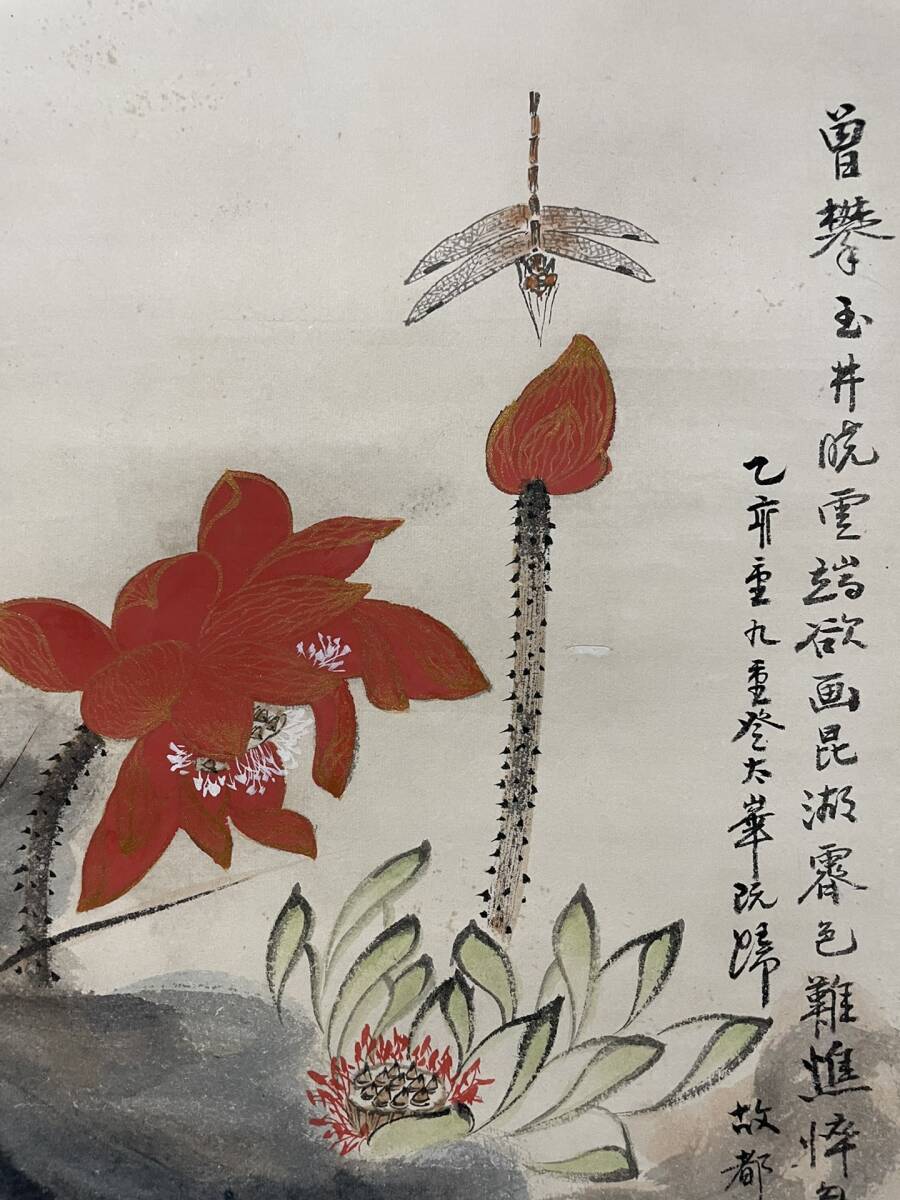 曾攀玉井曉雲端欲画昆湖霽色難憔悴
乙亥重九重登太華阮歸
故都